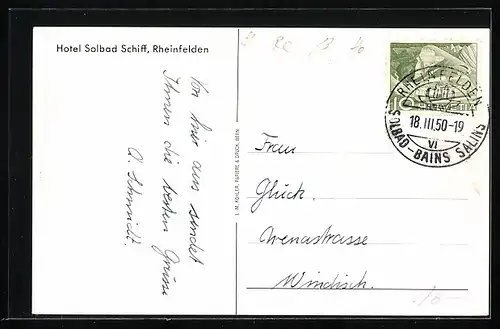 Hotel Solbad Schiff, Rheinfelden
Von hier aus sendet
Ihnen die besten Grüsse
A. Schmidt.
Frau
Glück.
Windisch.
RHEINFELDEN
18.III.50-19
VI
SOLBAD-BAINS SALINS
10
10-